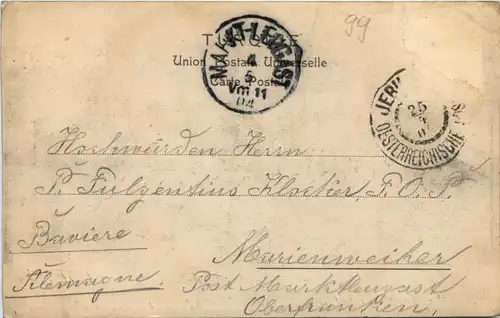 99
TURQUIE
Union Postale Universelle
Carte Postale
MARKT-LEUGAST
4
5
Vm 11
04
JERU
25
OESTERREICHISCHE
Hochwürden Herrn
P. Fulgentius Klocker, F. O. P.
Bavière
Marienweiher
Allemagne.
Post Marktleugast
Oberfranken,